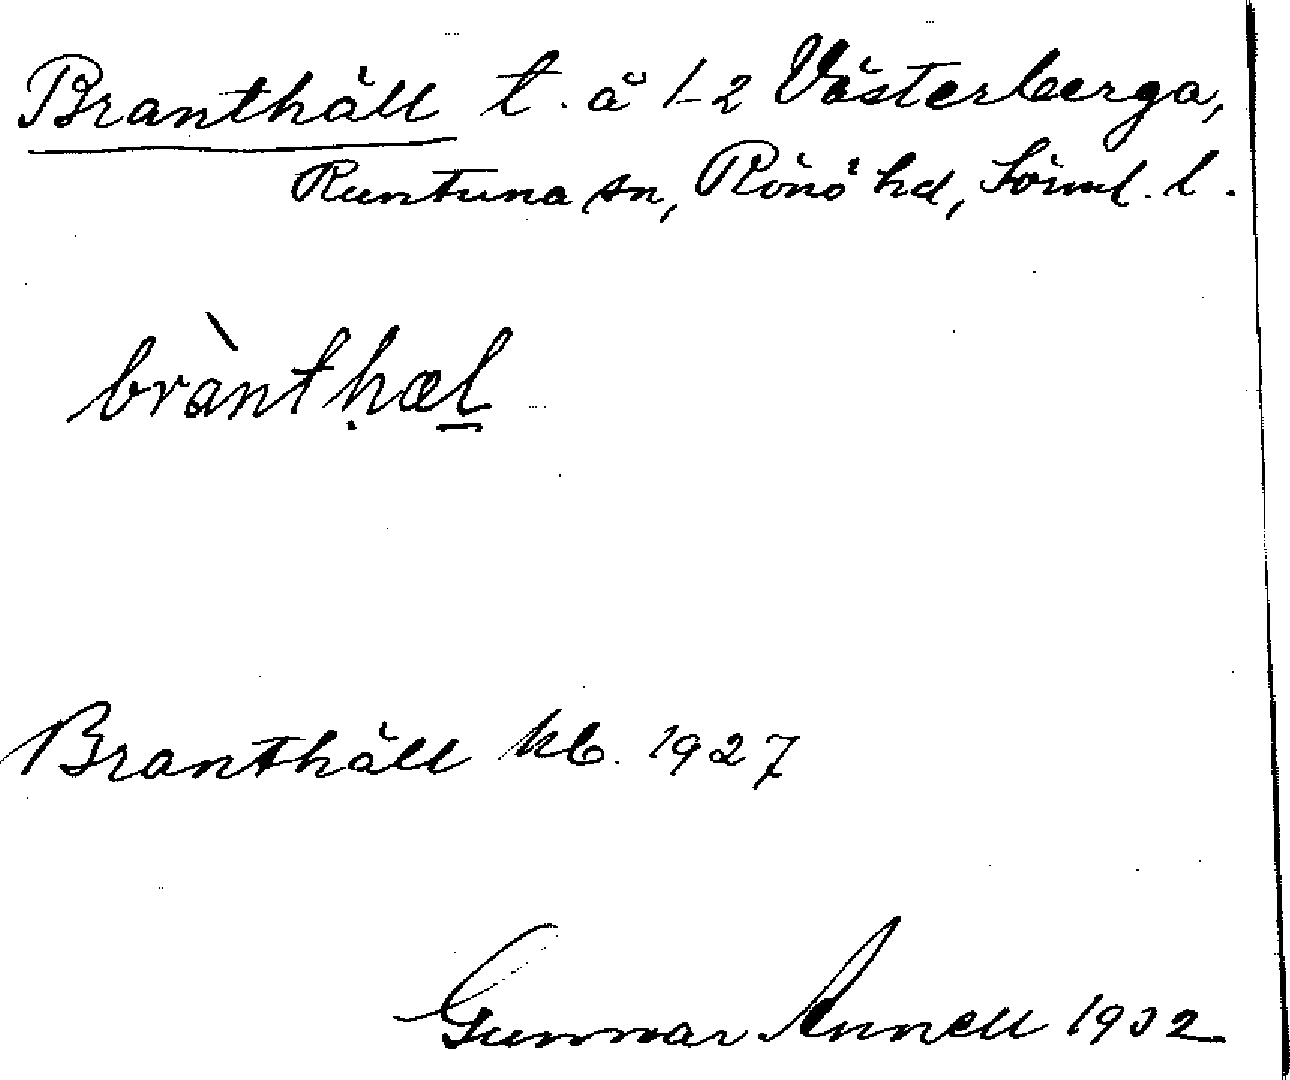 Branthäll t. å 1-2 Västerberga,
Runtuna sn, Rönö hd, Söml. l.
bràntḥæl̲
Branthäll kb. 1927
Gunnar Annell 1932